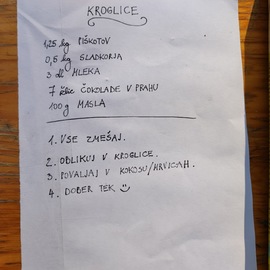 KROGLICE
1,25 kg PIŠKOTOV
0,5 kg SLADKORJA
3 dl MLEKA
7 žlic ČOKOLADE V PRAHU
100 g MASLA
1. VSE ZMEŠAJ.
2. OBLIKUJ V KROGLICE.
3. POVALJAJ V KOKOSU/MRVICAH.
4. DOBER TEK ☺